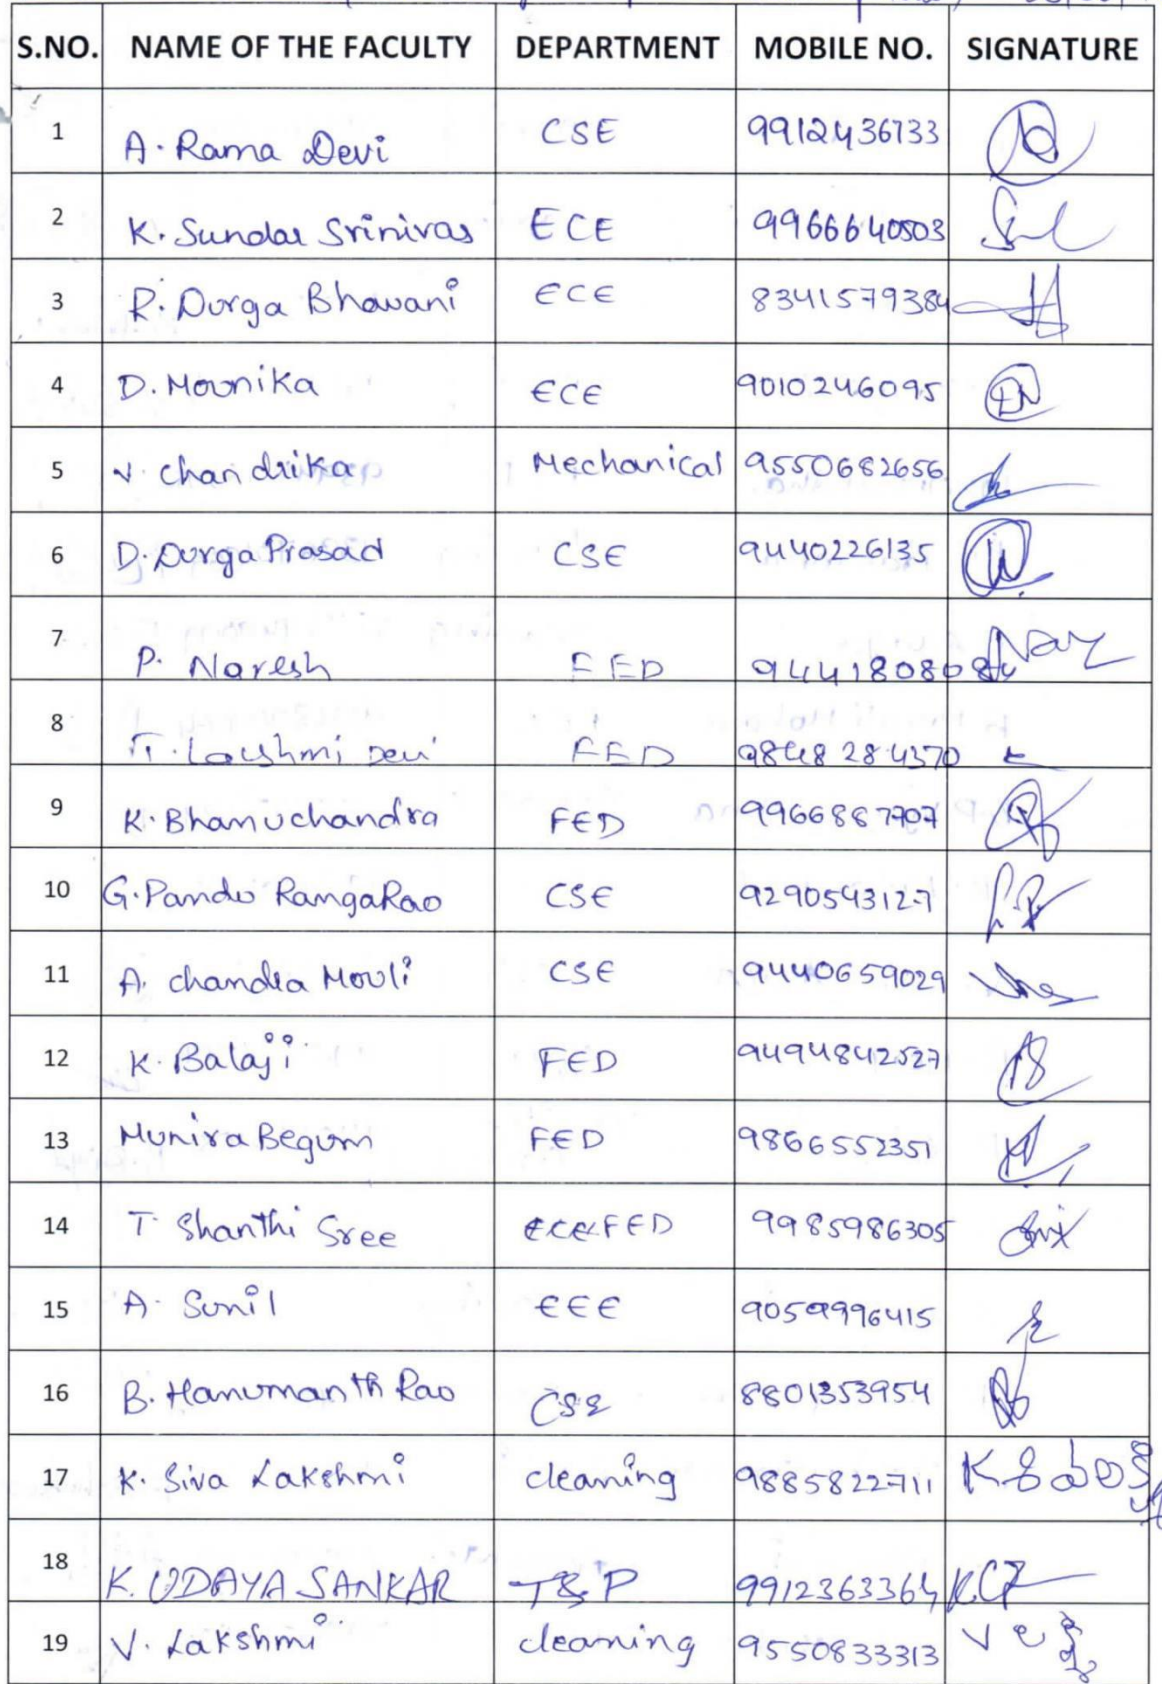 S.NO. NAME OF THE FACULTY DEPARTMENT MOBILE NO. SIGNATURE
1 A. Rama Devi CSE 9912436733
2 K. Sundar Srinivas ECE 9966640503
3 R. Durga Bhavani ECE 8341579384
4 D. Mounika ECE 9010246095
5 V. Chandrika Mechanical 9550682656
6 D. Durga Prasad CSE 9440226135
7 P. Naresh FED 9441808084
8 T. Lakshmi Devi FED 9848284370
9 K. Bhanuchandra FED 9966887707
10 G. Pandu RangaRao CSE 9290543127
11 A. Chandra Mouli CSE 9440659029
12 K. Balaji FED 9494842527
13 Munira Begum FED 9866552351
14 T. Shanthi Sree FED 9985986305
15 A. Sunil EEE 9059996415
16 B. Hanumanth Rao CSE 8801353954
17 K. Siva Lakshmi cleaning 9885822711
18 K. UDAYA SANKAR T&P 9912363364
19 V. Lakshmi cleaning 9550833313